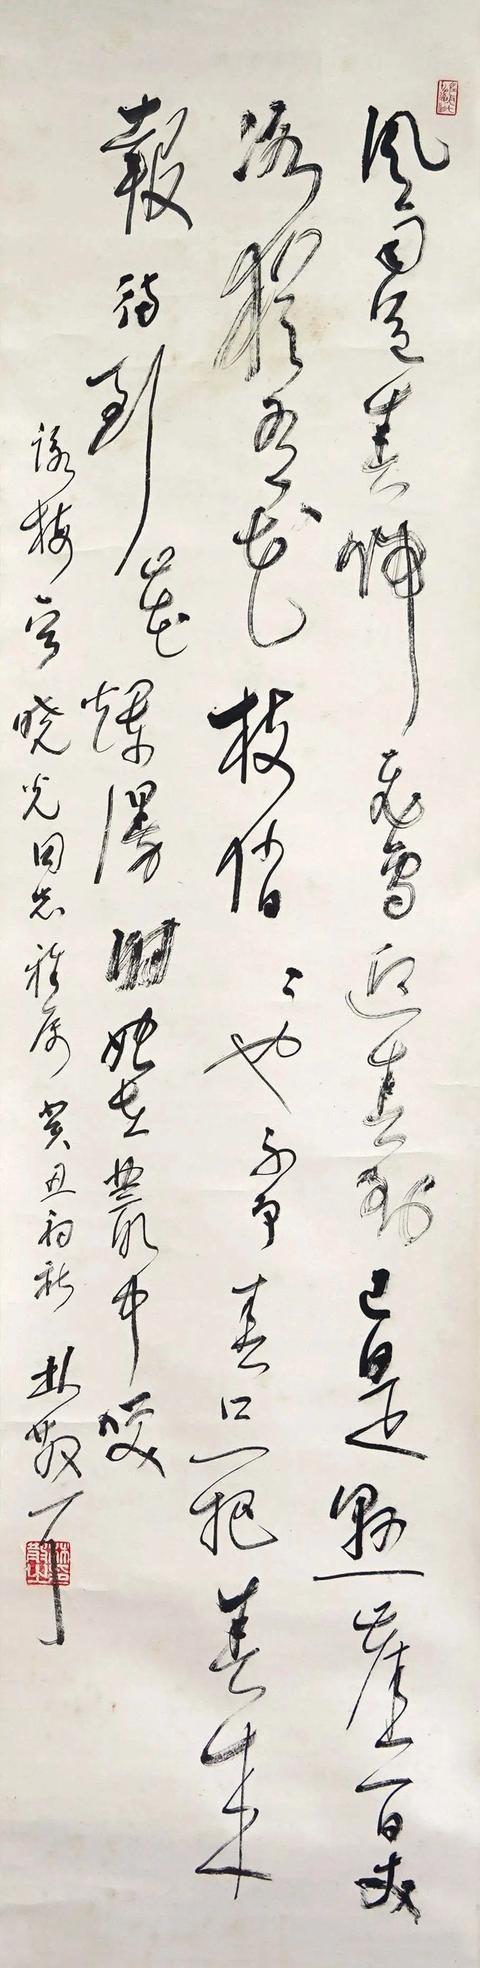 風雨送春歸飛雪迎春到已是懸崖百丈
冰猶有花枝俏〻也不爭春只把春來
報待到山花爛漫時她在叢中咲
詠梅 晓光同志雅属 癸丑初秋 林散耳